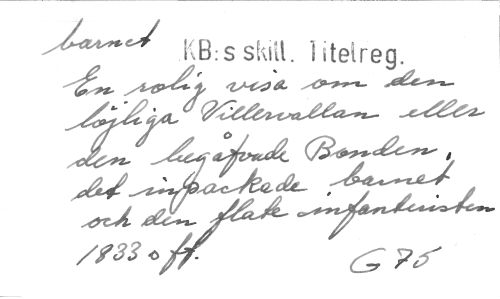 barnet
KB:s skill. Titelreg.
En rolig visa om den
löjliga Villervallan eller
den begåfvade Bonden,
det inpackade barnet
och den flate infanteristen
1833 o ff.
G 75